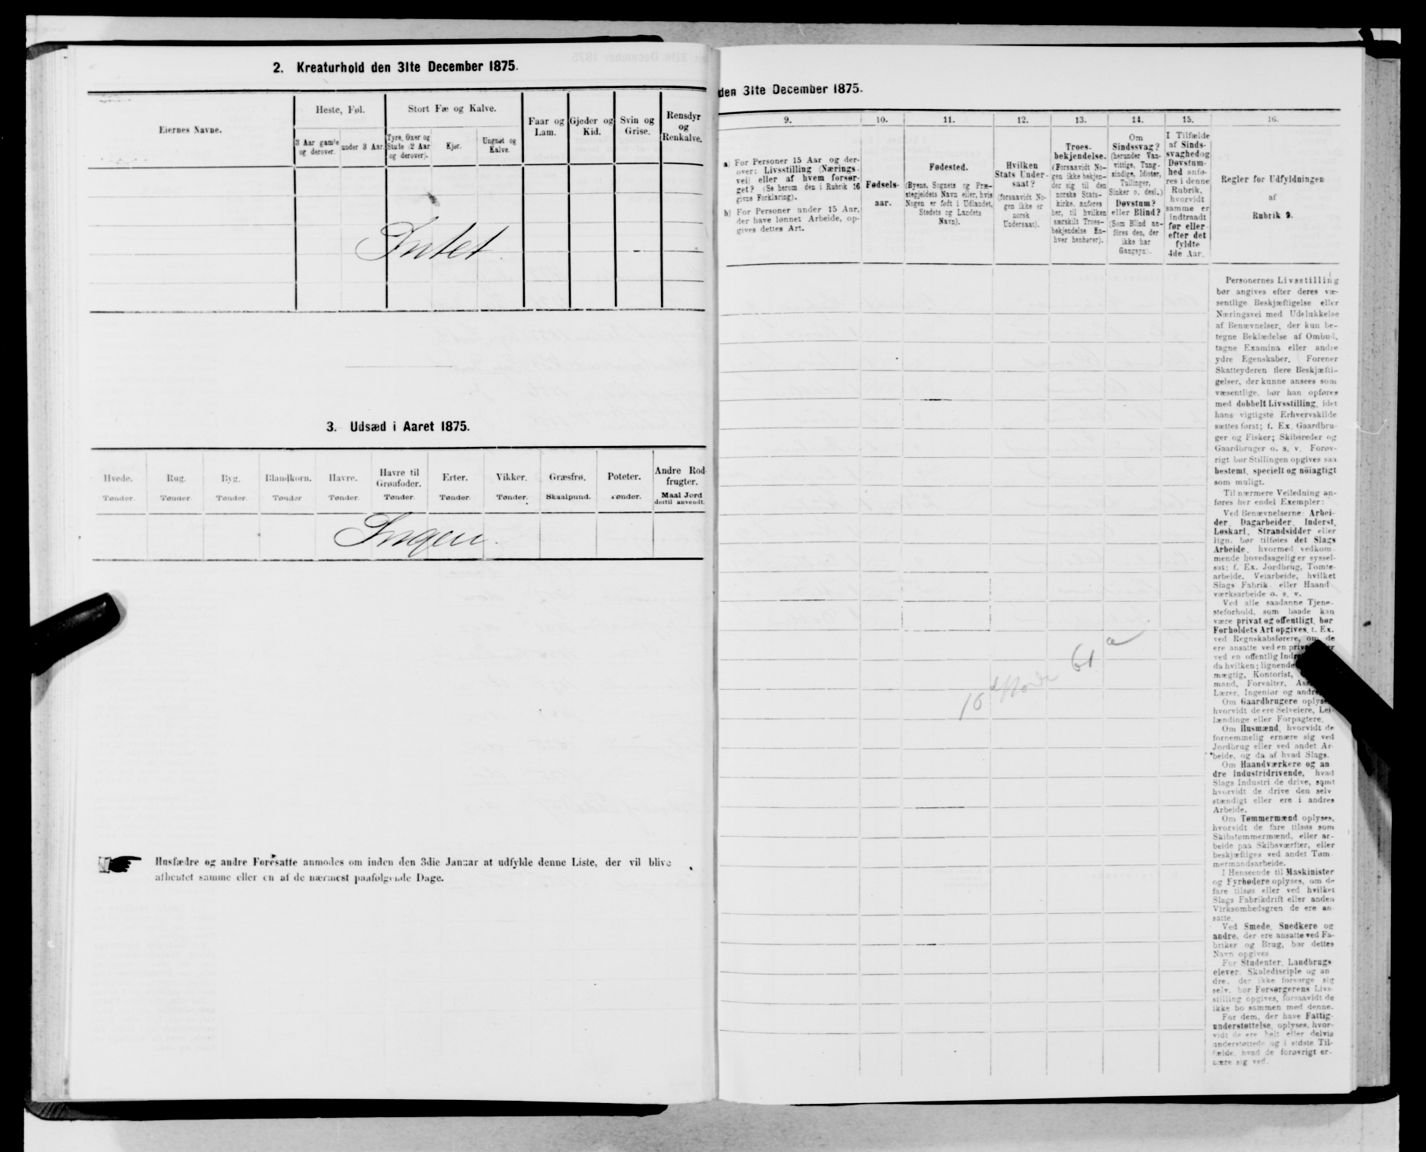 2. Kreaturhold den 31te December 1875.
Eiernes Navne.
Heste, Føl.
3 Aar gamle og derover.
under 3 Aar.
Stort Fæ og Kalve.
Tyre, Oxer og Stude (2 Aar og derover).
Kjør.
Ungnøt og Kalve.
Faar og Lam.
Gjeder og Kid.
Svin og Grise.
Rensdyr og Renkalve.
Intet
3. Udsæd i Aaret 1875.
Hvede. Tønder.
Rug. Tønder.
Byg. Tønder.
Blandkorn. Tønder
Havre. Tønder.
Havre til Grønfoder. Tønder.
Erter. Tønder.
Vikker. Tønder.
Græsfrø. Skaalpund.
Poteter. Tønder.
Andre Rodfrugter. Maal Jord dertil anvendt.
Ingen
Husfædre og andre Foresatte anmodes om inden den 3die Januar at udfylde denne Liste, der vil blive
afhentet samme eller en af de nærmest paafølgende Dage.
den 31te December 1875.
9.
a) For Personer 15 Aar og der-
over: Livsstilling (Nærings-
vei) eller af hvem forsør-
get? (Se herom den i Rubrik 16
givne Forklaring).
b) For Personer under 15 Aar,
der have lønnet Arbeide, op-
gives dettes Art.
10.
Fødsels-
aar.
11.
Fødested.
(Byens, Sognets og Præ-
stegjeldets Navn eller, hvis
Nogen er født i Udlandet,
Stedets og Landets
Navn).
12.
Hvilken
Stats Under-
saat?
(forsaavidt No-
gen ikke er
norsk
Undersaat).
13.
Troes-
bekjendelse.
(Forsaavidt No-
gen ikke bekjen-
der sig til den
norske Stats-
kirke, anføres
her, til hvilken
særskilt Troes-
bekjendelse En-
hver henhører).
14.
Om
Sindssvag?
(herunder Van-
vittige, Tung-
sindige, Idioter,
Tullinger,
Sinker o. desl.)
Døvstum?
eller Blind?
(Som Blind an-
føres den, der
ikke har
Gangsyn).
15.
I Tilfælde
af Sinds-
svaghed og
Døvstum-
hed anfø-
res i denne
Rubrik,
hvorvidt
samme er
indtraadt
før eller
efter det
fyldte
4de Aar.
16.
Regler for Udfyldningen
af
Rubrik 9.
Personernes Livsstilling
bør angives efter deres væ-
sentlige Beskjæftigelse eller
Næringsvei med Udelukkelse
af Benævnelser, der kun be-
tegne Beklædelse af Ombud,
tagne Examina eller andre
ydre Egenskaber. Forener
Skatteyderen flere Beskjæfti-
gelser, der kunne ansees som
væsentlige, bør han opføres
med dobbelt Livsstilling, idet
hans vigtigste Erhvervskilde
sættes først; f. Ex. Gaardbru-
ger og Fisker; Skibsreder og
Gaardbruger o. s. v. Forøv-
rigt bør Stillingen opgives saa
bestemt, specielt og nøiagtigt
som muligt.
Til nærmere Veiledning an-
føres her endel Exempler:
Ved Benævnelserne: Arbei-
der, Dagarbeider, Inderst,
Løskarl, Strandsidder eller
lign. bør tilføies det Slags
Arbeide, hvormed vedkom-
mende hovedsageligr er syssel-
sat; f. Ex. Jordbrug, Tomte-
arbeide, Veiarbeide, hvilket
Slags Fabrik- eller Haand-
værksarbeide o. s. v.
Ved alle saadanne Tjene-
steforhold, som baade kan
være privat og offentligt, bør
Forholdets Art opgives, f. Ex.
ved Regnskabsførere, om de
ere ansatte ved en
ved en offentlig
da hvilken; lignende
mægtig, Kontorist,
mand, Forvalter,
Lærer, Ingeniør og
Om Gaardbrugere
hvorvidt de ere Selveiere, Lei-
lændinge eller Forpagtere.
Om Husmænd, hvorvidt de
fornemmelig ernære sig ved
Jordbrug eller ved andet Ar-
beide, og da af hvad Slags.
Om Haandværkere og an-
dre industridrivende, hvad
Slags Industri de drive, samt
hvorvidt de drive den selv-
stændigt eller ere i andres
Arbeide.
Om Tømmermænd oplyses,
hvorvidt de fare tilsøs som
Skibstømmermænd, eller ar-
beide paa Skibsværfter, eller
beskjæftiges ved andet Tøm-
mermandsarbeide.
I Henseende til Maskinister
og Fyrbødere oplyses, om de
fare tilsøs eller ved hvilket
Slags Fabrikdrift eller anden
Virksomhedsgren de ere an-
satte.
Ved Smede, Snedkere og
andre, der ere ansatte ved Fa-
briker og Brug, bør dettes
Navn opgives.
For Studenter, Landbrugs-
elever, Skoledisciple og an-
dre, der ikke forsørge sig
selv, bør Forsørgerens Livs-
stilling opgives, forsaavidt de
ikke bo sammen med denne.
For dem, der have Fattig-
understøttelse, oplyses, hvor-
vidt de ere helt eller delvis
understøttede og i sidste Til-
fælde, hvad de forøvrigt er-
nære sig ved.
61 a